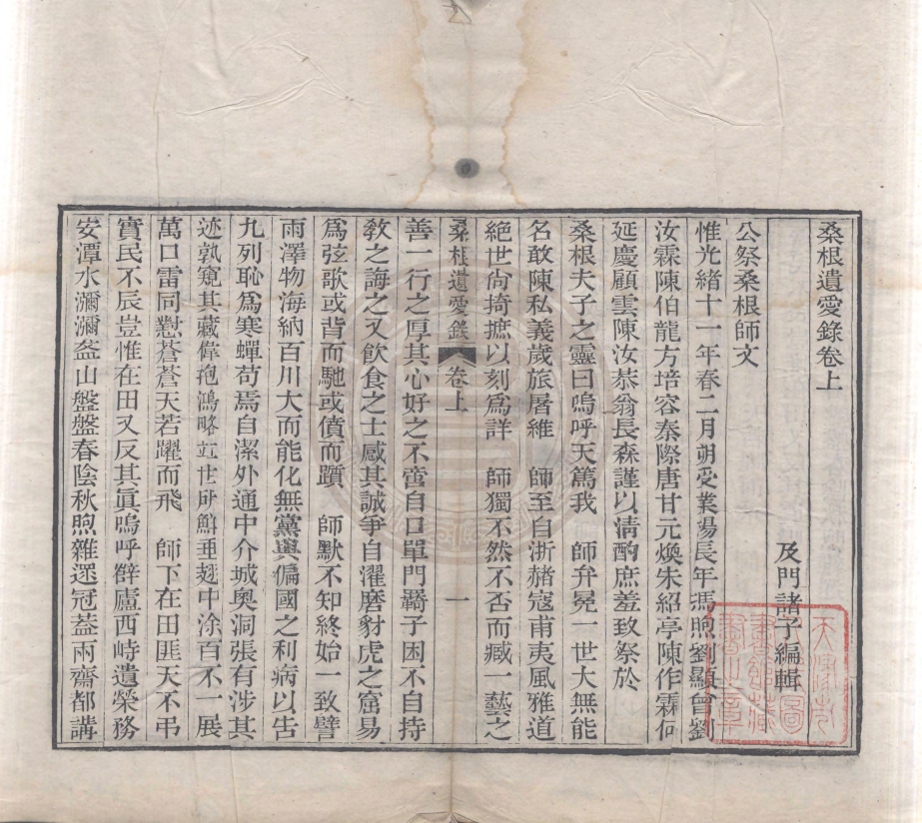 桑根遺愛錄卷上
及門諸子編輯
公祭桑根師文
惟光緒十一年春二月朔受業湯長年馮煦劉顯曾劉
汝霖陳伯龍方培容秦際唐甘元煥朱紹亭陳作霖何
延慶顧雲陳汝恭翁長森謹以清酌庶羞致祭於
桑根夫子之靈曰嗚呼天篤我 師弁冕一世大無能
名敢陳私義歲旅屠維 師至自浙赭寇甫夷風雅道
絕世尙掎摭以刻爲詳 師獨不然不否而臧一藝之
桑根遺愛錄 卷上 一
善一行之厚其心好之不啻自口單門羈子困不自持
敎之誨之又飮食之士感其誠爭自濯磨豺虎之窟易
爲弦歌或背而馳或僨而躓 師默不知終始一致譬
雨澤物海納百川大而能化無黨與偏國之利病以告
九列恥爲寒蟬苟焉自潔外通中介城奧洞張有涉其
迹孰窺其藏偉抱鴻略立世硏 垂 中涂百不一展
萬口雷同懟蒼蒼天若躍而飛 師下在田匪天不弔
實民不辰豈惟在田又反其眞嗚呼薛廬西峙遺榮務
安潭水瀰瀰盋山盤盤春陰秋煦雜遝冠葢兩齋都講